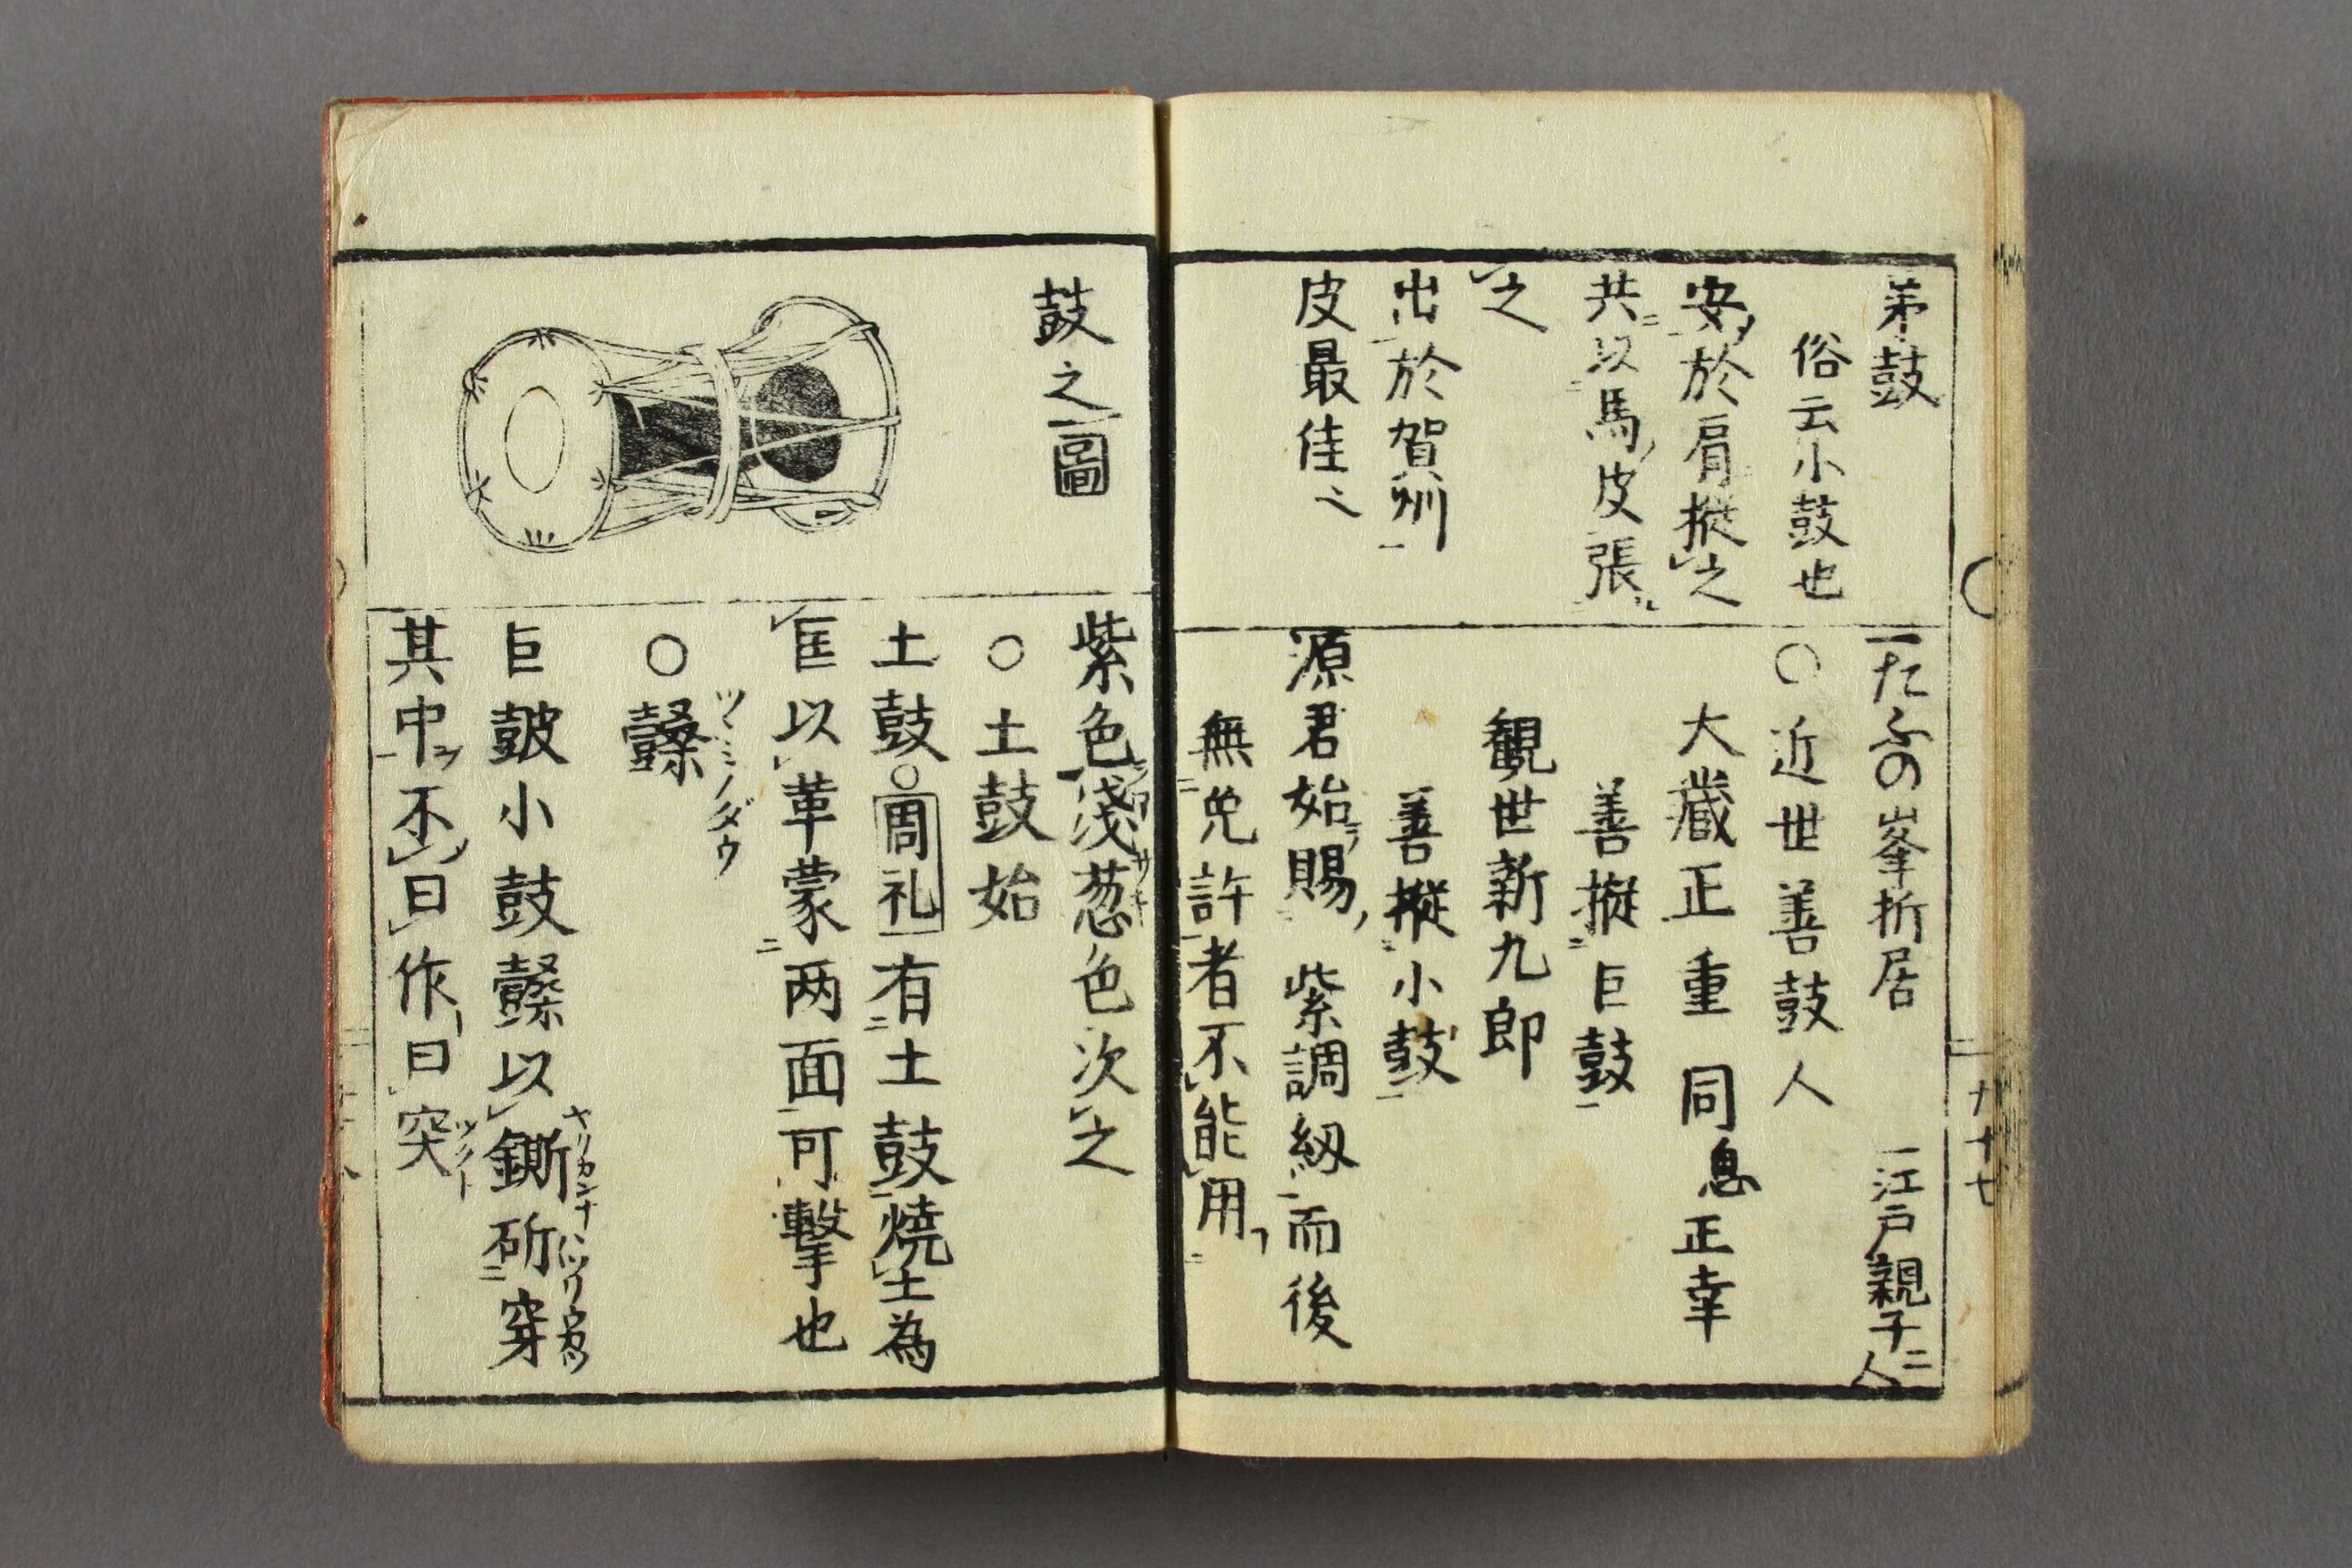 弟鼓
俗云小鼓也
安於肩摐之
共以馬皮張
之
出於賀州
皮最佳
一たふの峯折居 一江戸親子二人
○近世善鼓人
大藏正重 同息正幸
善摐巨鼓
観世新九郎
善摐小鼓
源君始賜紫調紉而後
無免許者不能用
鼓之圖
紫色淺葱色次之
○土鼓始
土鼓○周礼有土鼓燒土為
匡以革蒙两面可擊也
○鼜 ツヽミノダウ
巨皷小鼓鼜以鐁斫穿
其中不曰作曰突